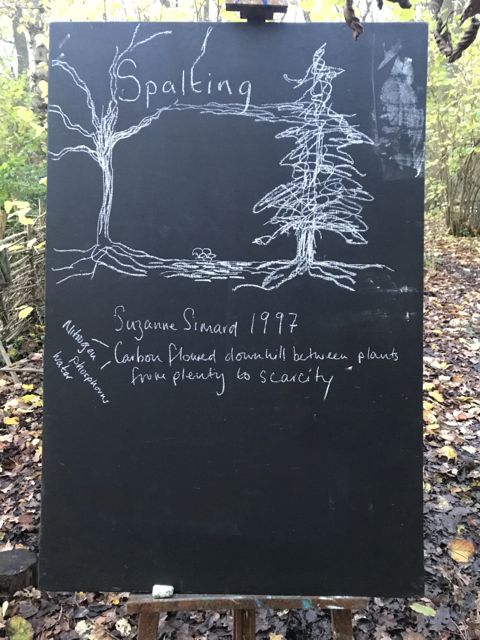 Spalting
Suzanne Simard 1997
Carbon flowed downhill between plants
from plenty to scarcity
Nitrogen
Phosphorus
Water